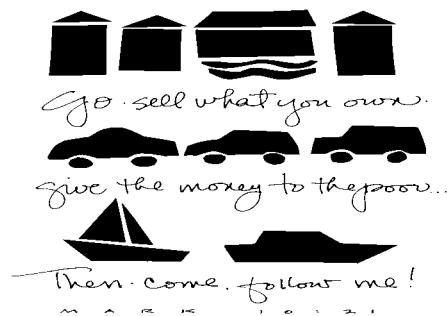 Go. sell what you own.
give the money to the poor...
Then. come. follow me!